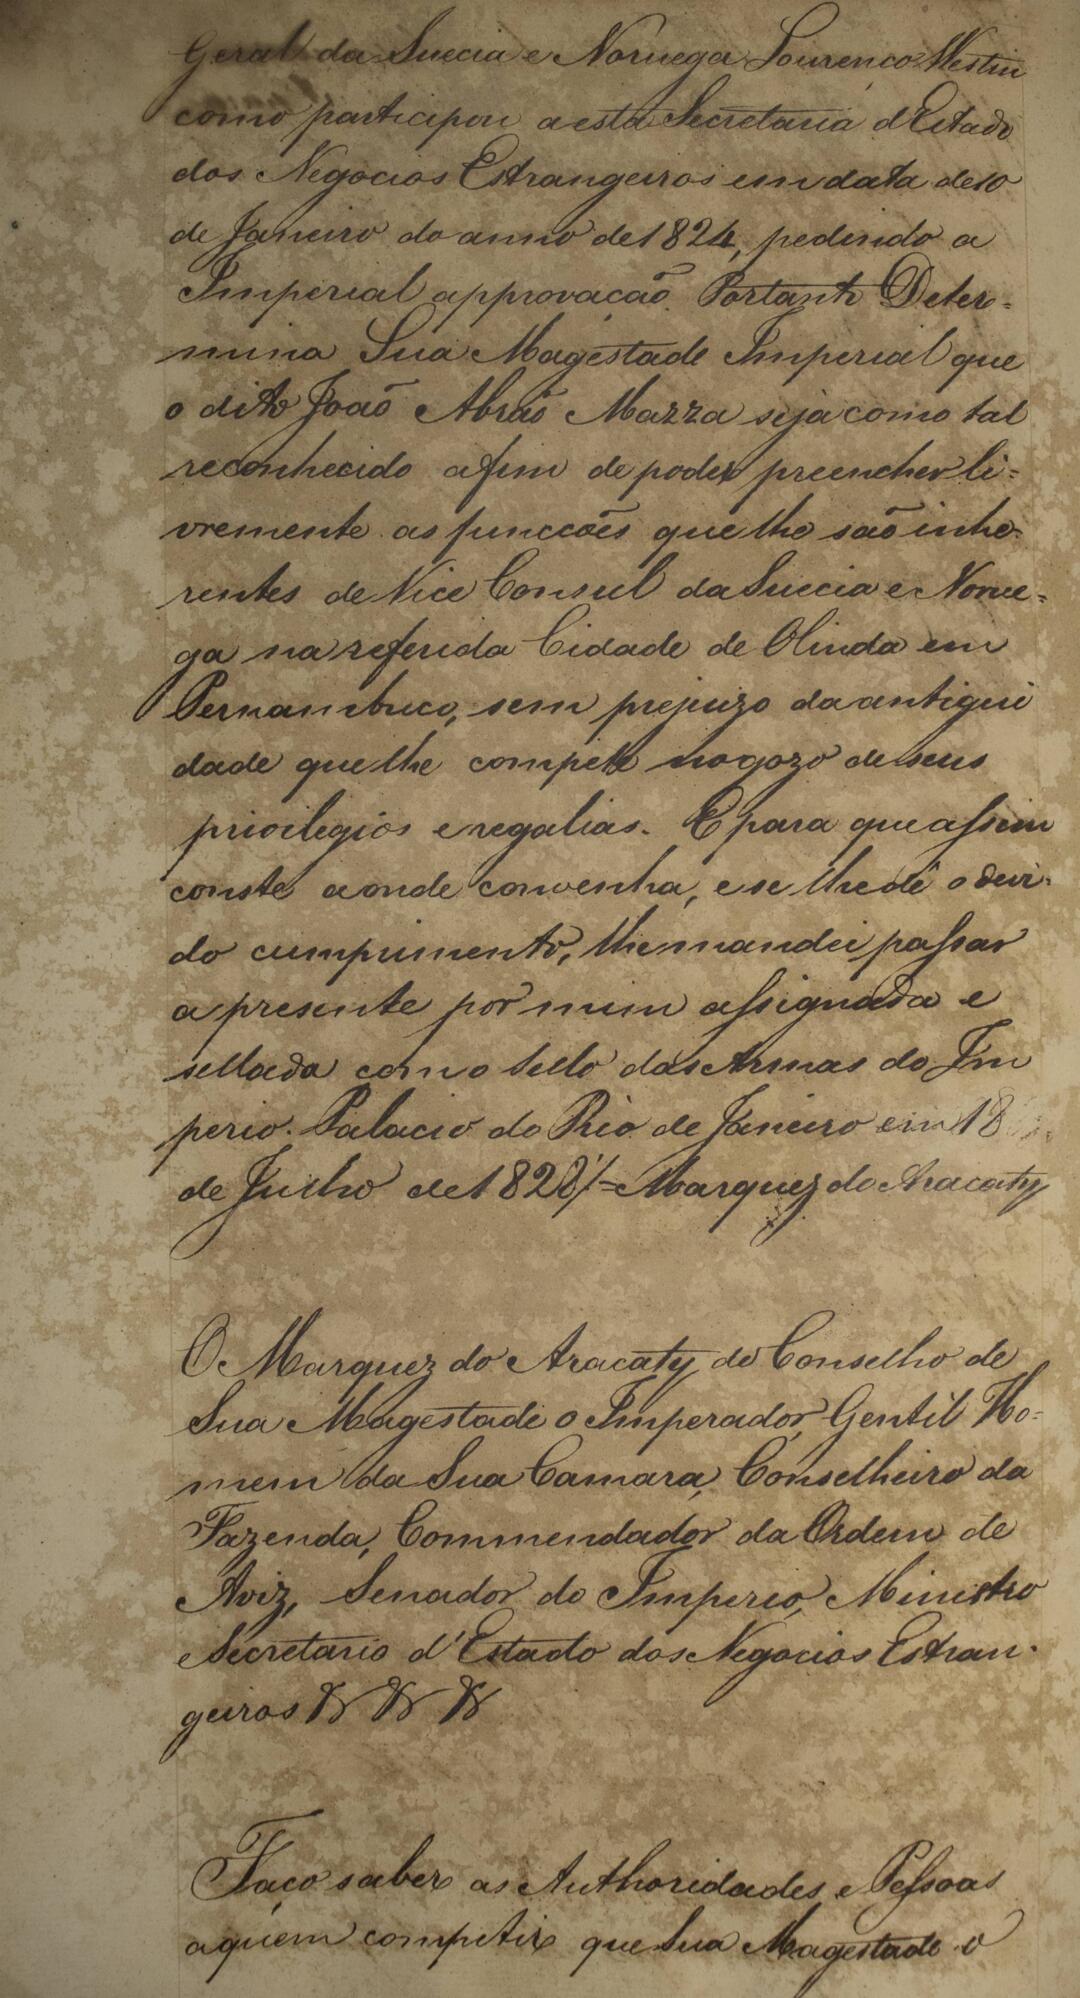 Geral da Suecia e Noruega Lourenço Westin
como participou a esta Secretaria d'Estado
dos Negocios Estrangeiros em data de 10
de Janeiro do anno de 1824, pedindo a
Imperial approvação. Portanto Deter-
mina Sua Magestade Imperial que
o dito João Abrão Mazza seja como tal
reconhecido afim de poder preencher li-
vremente as funcções que lhe são inhe-
rentes de Vice Consul da Suecia e Norue-
ga na referida Cidade de Olinda em
Pernambuco, sem prejuizo da antigui
dade que lhe compete no gozo de seus
privilegios e regalias. E para que assim
conste aonde convenha, e se lhe dê o devi-
do cumprimento, lhe mandei passar
a presente por mim assignada e
sellada com o Sello das Armas do Im
perio. Palacio do Rio de Janeiro em 18
de Julho de 1828 /= Marquez do Aracaty
O Marquez do Aracaty, do Conselho de
Sua Magestade o Imperador, Gentil Ho-
mem da Sua Camara, Conselheiro da
Fazenda, Commendador da Ordem de
Aviz, Senador do Imperio, Ministro
Secretario d'Estado dos Negocios Estran-
geiros
Faço saber as Authoridades e Pessoas
aquem competir que Sua Magestade o